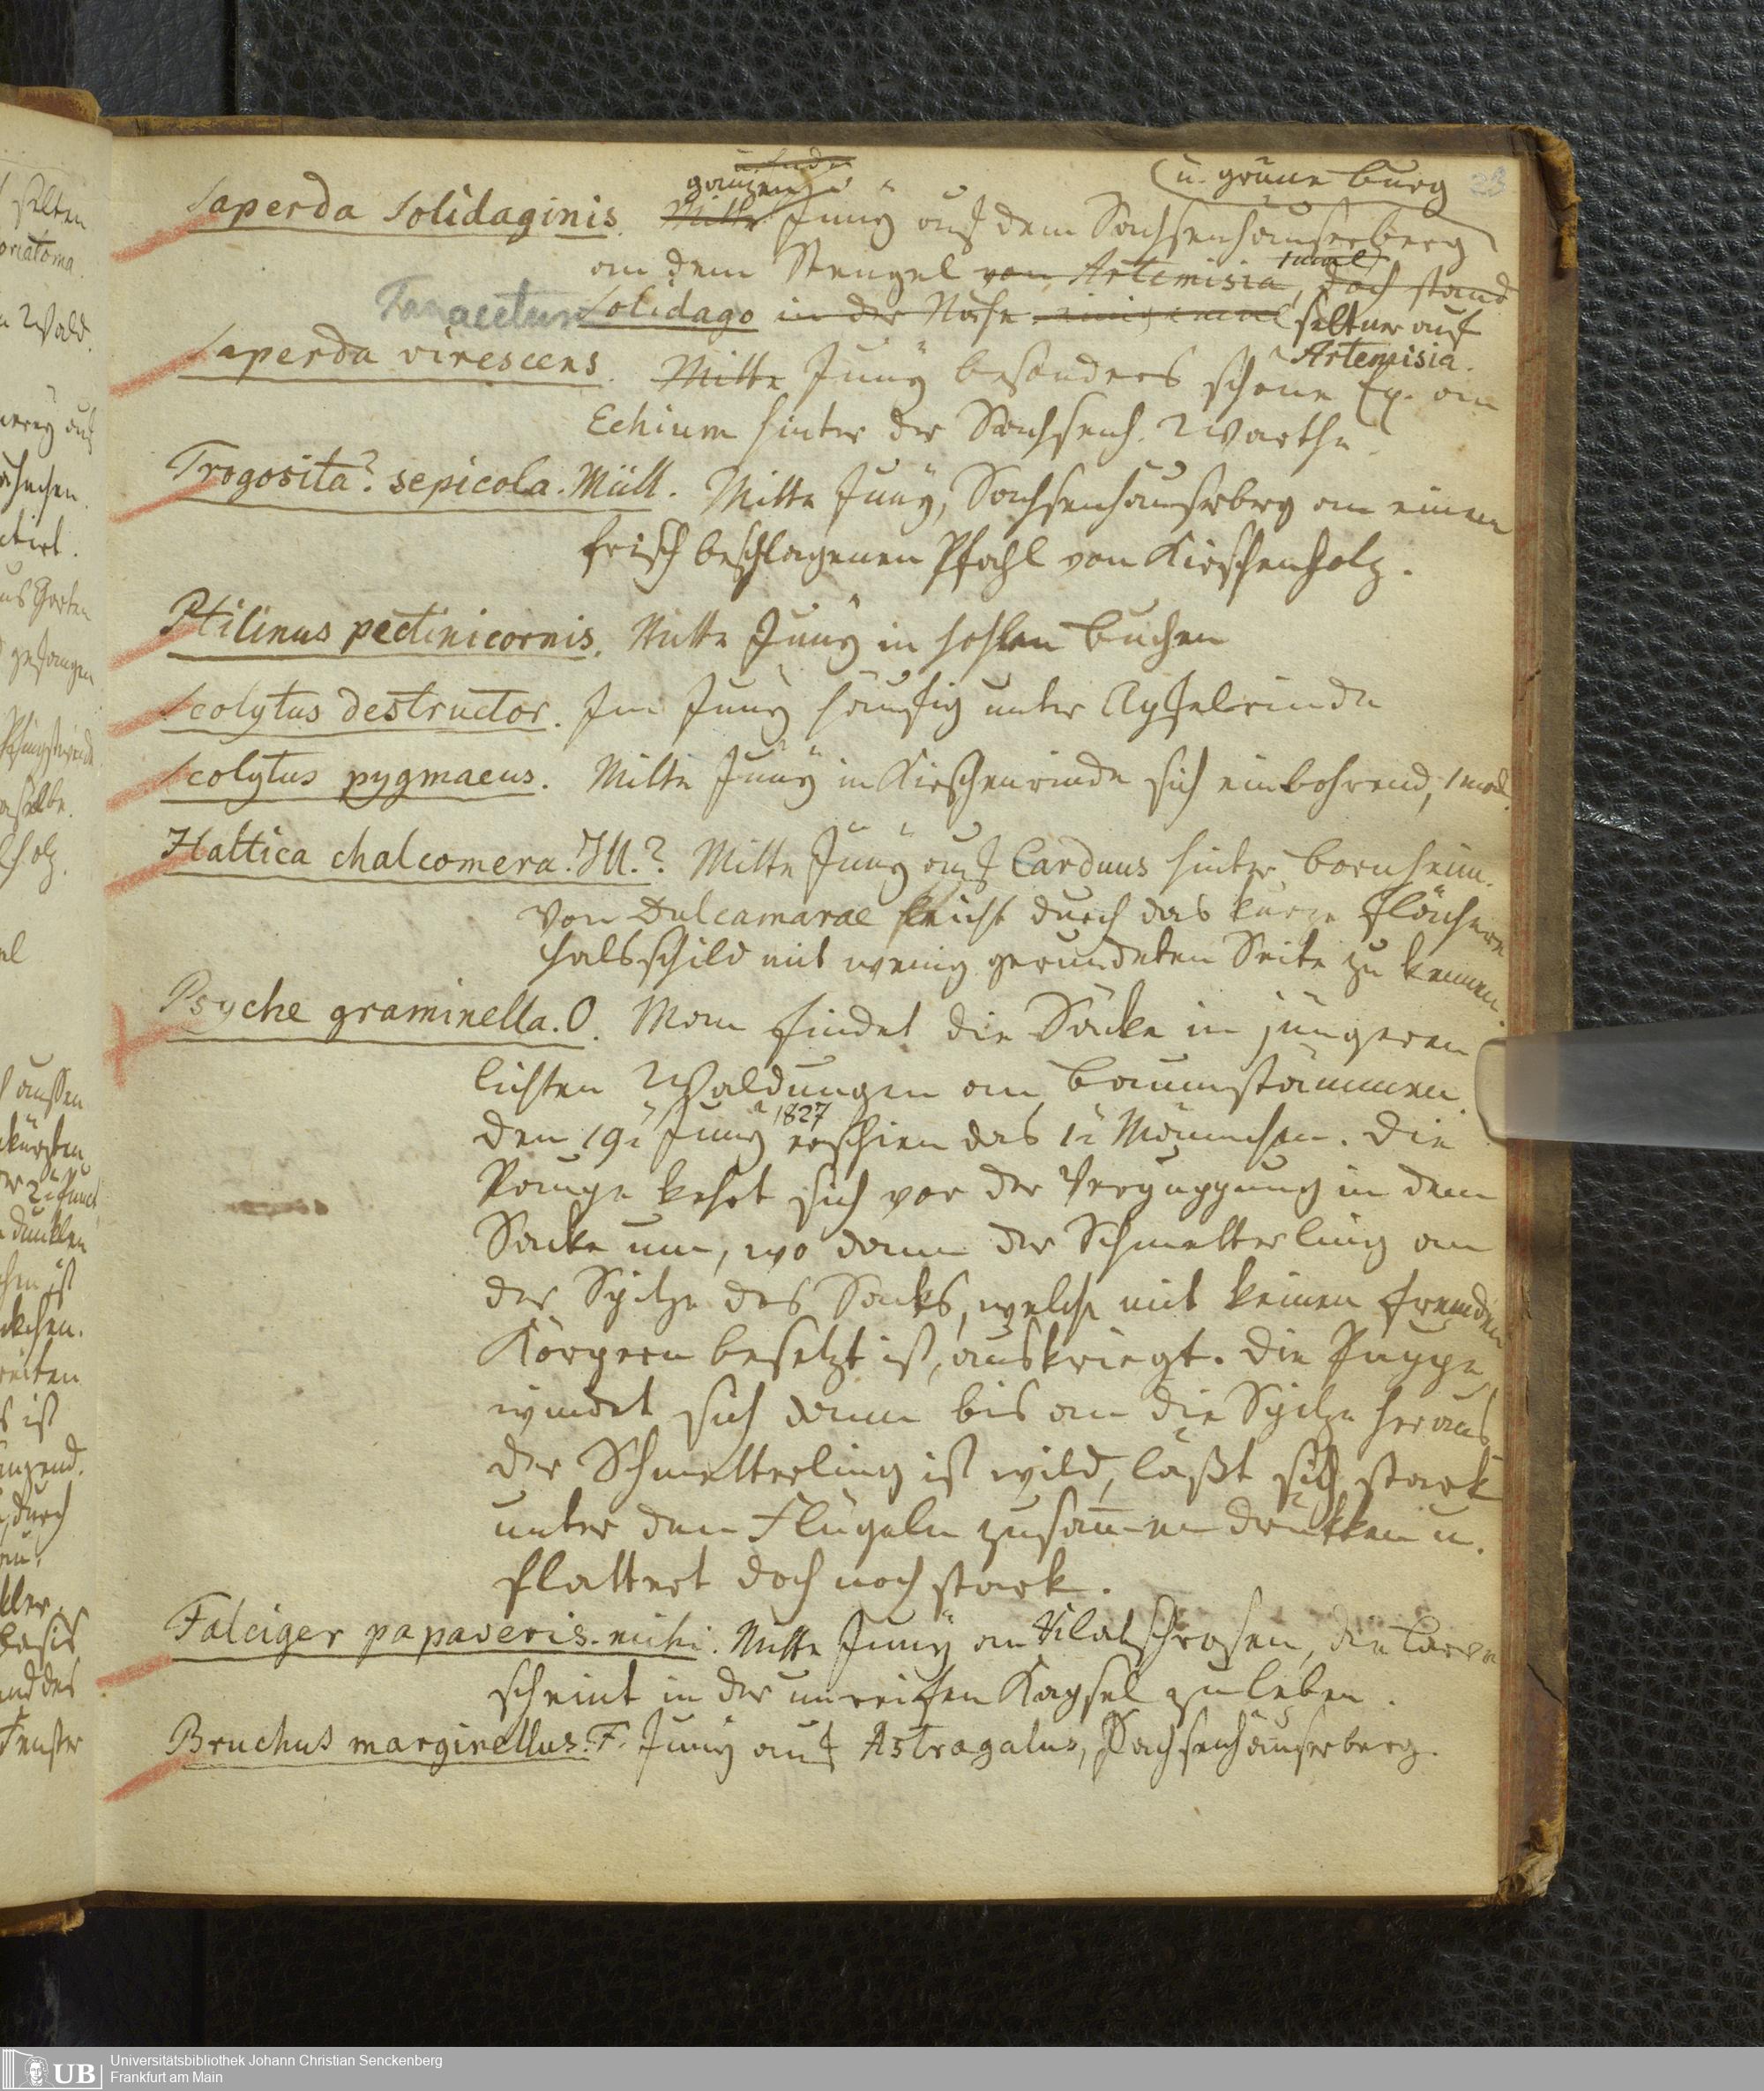 u. Ende
ganzen
(u. grüne Burg
23
Saperda Solidaginis. Mitte Juny auf dem Sachsenhäuserberg
an dem Stengel von Artemisia, doch stand
1 mal
Tanacetum Solidago in der Nähe einigemal seltner auf
Artemisia.
Saperda virescens. Mitte Juny besonders schöne Ex. an
Echium hinter der Sachsenh. Warthe.
Trogosita? sepicola. Müll. Mitte Juny, Sachsenhäuserberg an einem
frisch beschlagenen Pfahl von Kirschenholz.
Ptilinus pectinicornis. Mitte Juny in hohlen Buchen
Scolytus destructor. Im Juny häufig unter Apfelrinde
Scolytus pygmaeus. Mitte Juny in Kirschenrinde sich einbohrend, 1 mal.
Haltica chalcomera. Ill.? Mitte Juny auf Carduus hinter Bornheim.
Von Dulcamarae leicht durch das kurze flächere
Halsschild mit wenig gerundeten Seite zu kennen.
Psyche graminella. O. Man findet die Säcke in jüngeren
lichten Waldungen an Baumstämmen.
den 19t Juny 1827 erschien das 1t Männchen. Die
Raupe kehrt sich vor der Verpuppung in dem
Sacke um, wo dann der Schmetterling an
der Spitze des Sacks, welche mit keinen fremden
Körpern besetzt ist, auskriegt. Die Puppe
windet sich dann bis an die Spitze heraus
der Schmetterling ist wild, läßt sich stark
unter den Flügeln zusammen drükken u.
flattert doch noch stark.
Falciger papaveris. mihi. Mitte Juny an Klatschrosen, die Larve
scheint in der unreifen Kapsel zu leben.
Bruchus marginellus. F. Juny auf Astragalus, Sachsenhäuserberg.
UB
Universitätsbibliothek Johann Christian Senckenberg
Frankfurt am Main